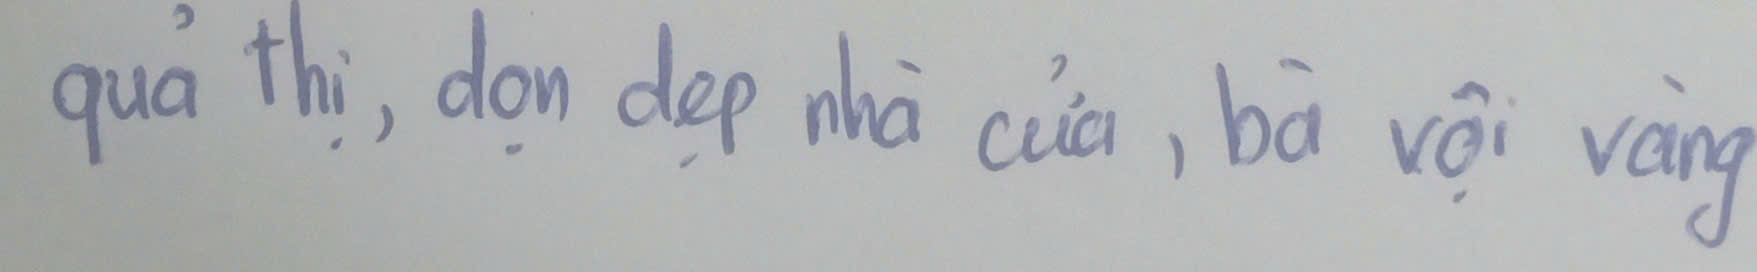 quả thị, dọn dẹp nhà cửa, bà vội vàng